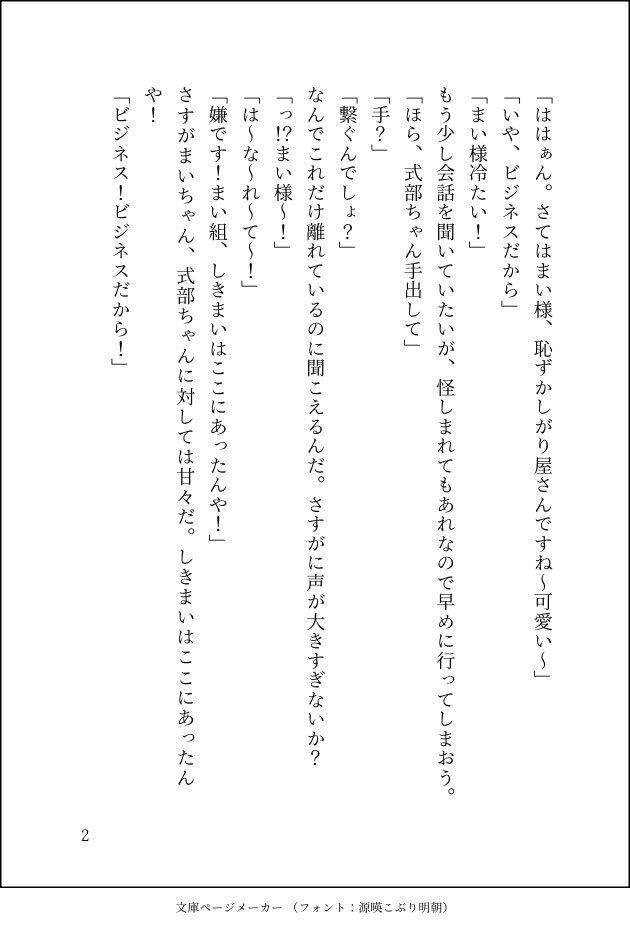 「ははぁん。さてはまい様、恥ずかしがり屋さんですね～可愛い～」
「いや、ビジネスだから」
「まい様冷たい！」
もう少し会話を聞いていたいが、怪しまれてもあれなので早めに行ってしまおう。
「ほら、式部ちゃん手出して」
「手？」
「繋ぐんでしょ？」
なんでこれだけ離れているのに聞こえるんだ。さすがに声が大きすぎないか？
「っ!?まい様～！」
「は～な～れ～て～！」
「嫌です！まい組、しきまいはここにあったんや！」
さすがまいちゃん、式部ちゃんに対しては甘々だ。しきまいはここにあったん
や！
「ビジネス！ビジネスだから！」
2
文庫ページメーカー（フォント：源暎こぶり明朝）